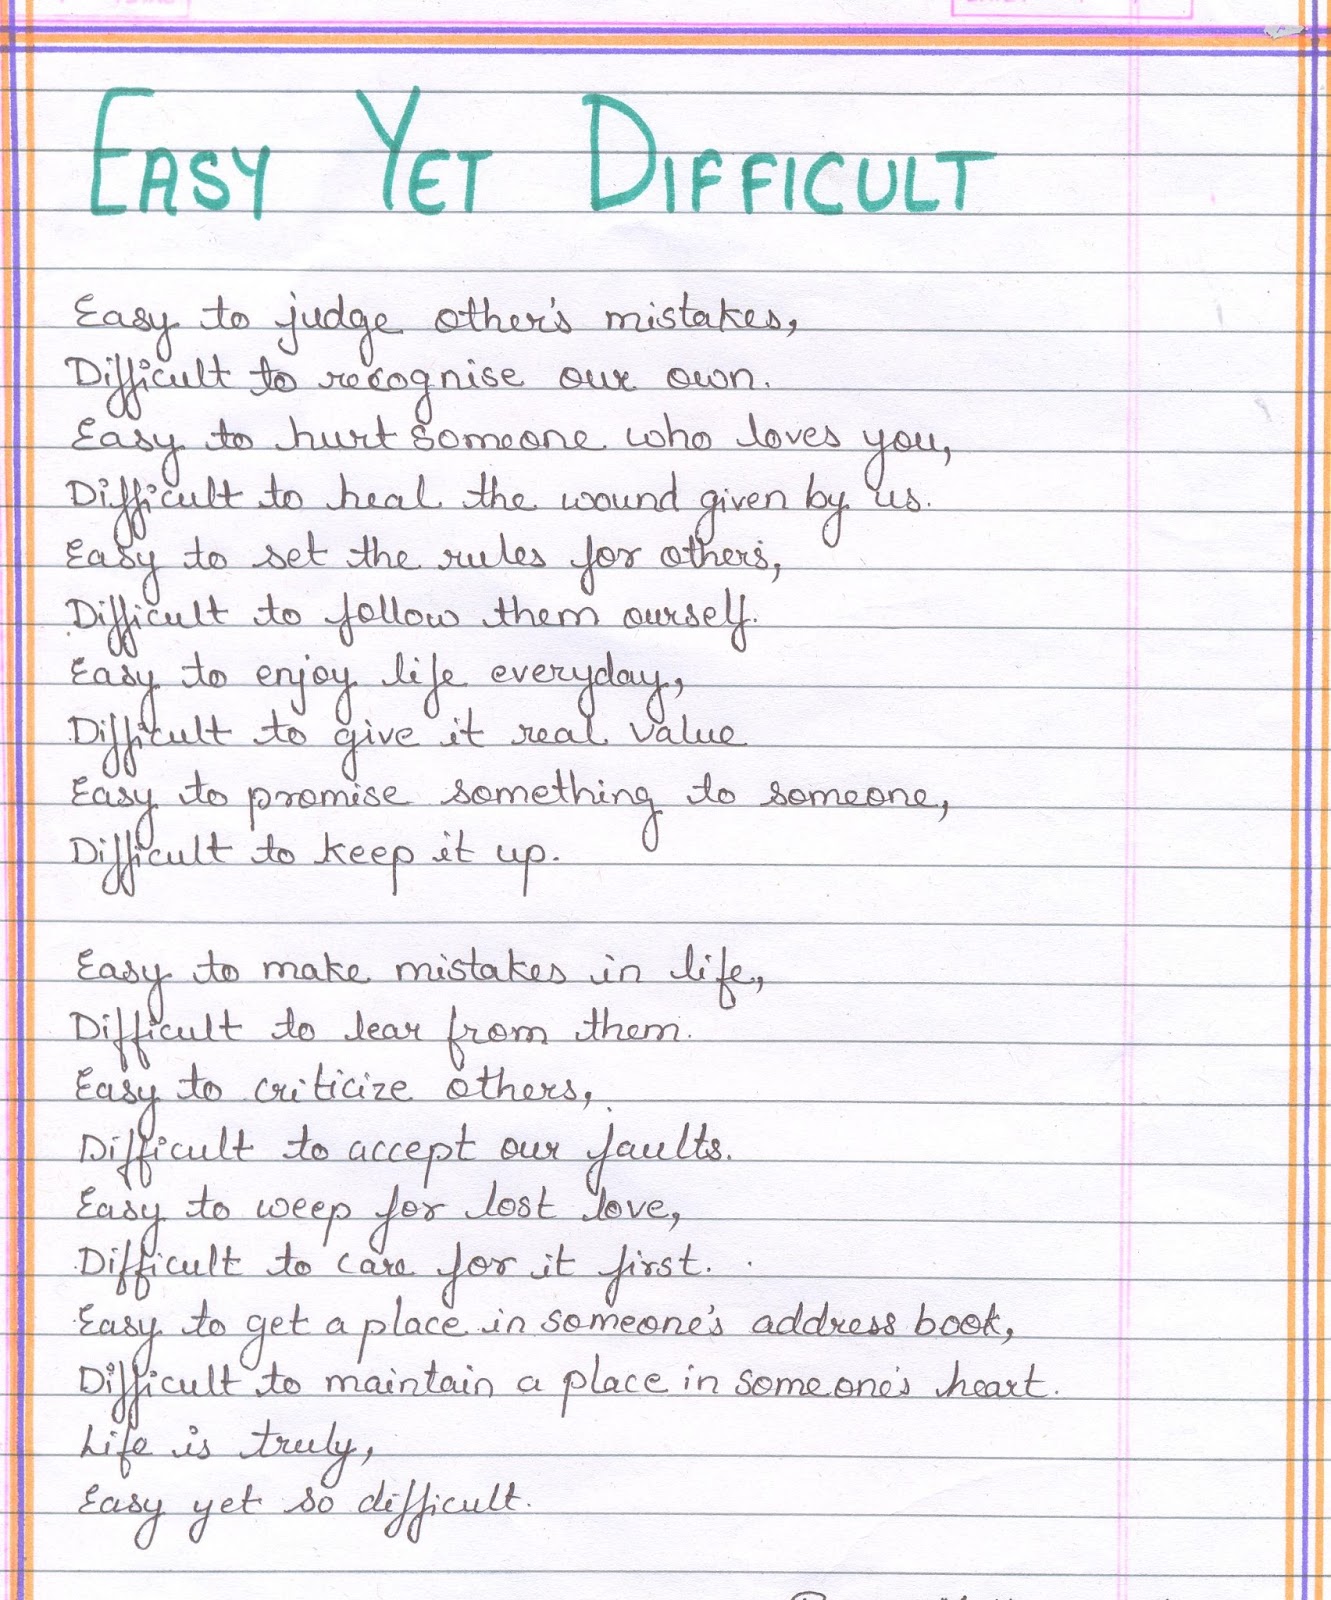 EASY YET DIFFICULT
Easy to judge other's mistakes,
Difficult to recognise our own.
Easy to hurt someone who loves you,
Difficult to heal the wound given by us.
Easy to set the rules for others,
Difficult to follow them ourself.
Easy to enjoy life everyday,
Difficult to give it real value
Easy to promise something to someone,
Difficult to keep it up.
Easy to make mistakes in life,
Difficult to lear from them.
Easy to criticize others,
Difficult to accept our faults.
Easy to weep for lost love,
Difficult to care for it first.
Easy to get a place in someone's address book,
Difficult to maintain a place in someone's heart.
Life is truly,
Easy yet so difficult.